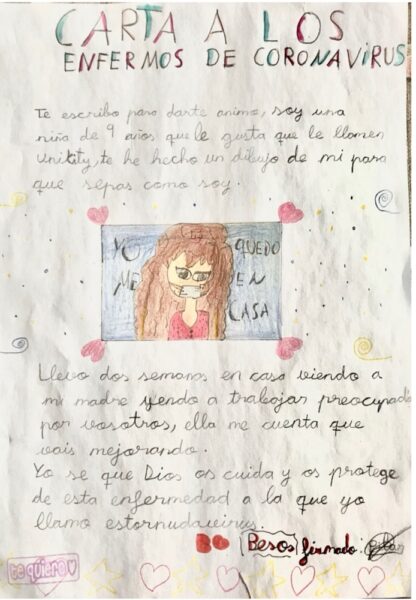 CARTA A LOS
ENFERMOS DE CORONAVIRUS
Te escribo para darte animo, soy una
niña de 9 años que le gusta que le llamen
Unikity, te he hecho un dibujo de mi para
que sepas como soy.
YO QUEDO
ME EN
CASA
Llevo dos semanas en casa viendo a
mi madre yendo a trabajar preocupada
por vosotros, ella me cuenta que
vais mejorando.
Yo se que Dios os cuida y os protege
de esta enfermedad a la que yo
llamo estornudavirus.
Besos firmado:
te quiero